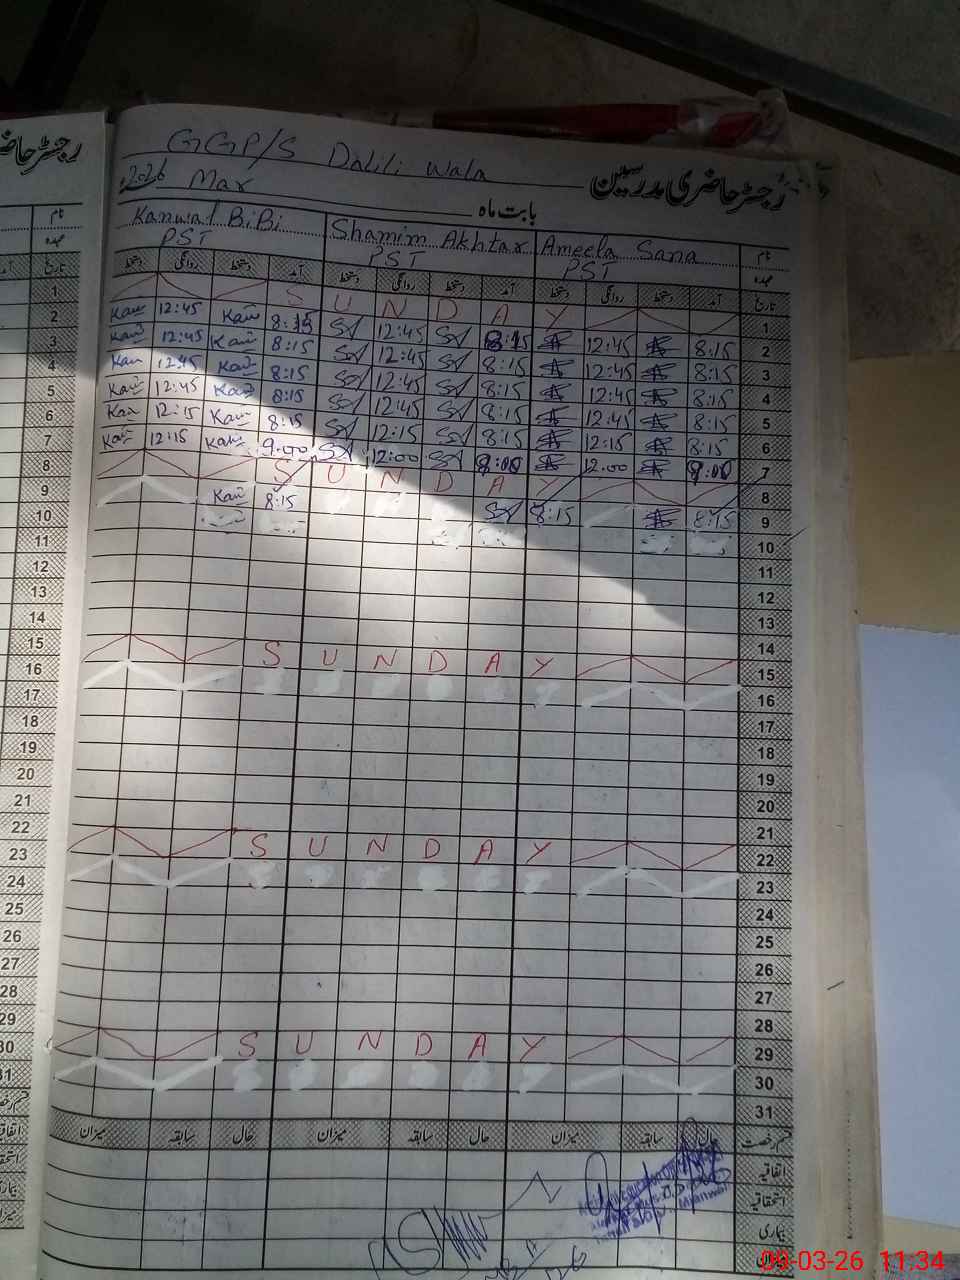 رجسٹر حاضری مدرسین
GGP/S Dalili Wala
2026 Mar بابت ماہ
Kanwal BiBi Shamim Akhtar Ameela Sana نام
PST PST PST عہدہ
دستخط روانگی دستخط آمد دستخط روانگی دستخط آمد دستخط روانگی دستخط آمد تاریخ
1 S U N D A Y 1
2 12:45 8:15 12:45 8:15 12:45 8:15 2
3 12:45 8:15 12:45 8:15 12:45 8:15 3
4 12:45 8:15 12:45 8:15 12:45 8:15 4
5 12:45 8:15 12:45 8:15 12:45 8:15 5
6 12:15 8:15 12:15 8:15 12:15 8:15 6
7 12:15 9:00 12:00 9:00 12:00 9:00 7
8 S U N D A Y 8
9 8:15 8:15 8:15 9
10 10
11 11
12 12
13 13
14 14
15 S U N D A Y 15
16 16
17 17
18 18
19 19
20 20
21 21
22 S U N D A Y 22
23 23
24 24
25 25
26 26
27 27
28 28
29 S U N D A Y 29
30 30
31 31
میزان سابقہ حال میزان سابقہ حال میزان سابقہ حال قسم رخصت
اتفاقیہ
استحقاقیہ
بیماری
Mianwali
09-03-26 11:34